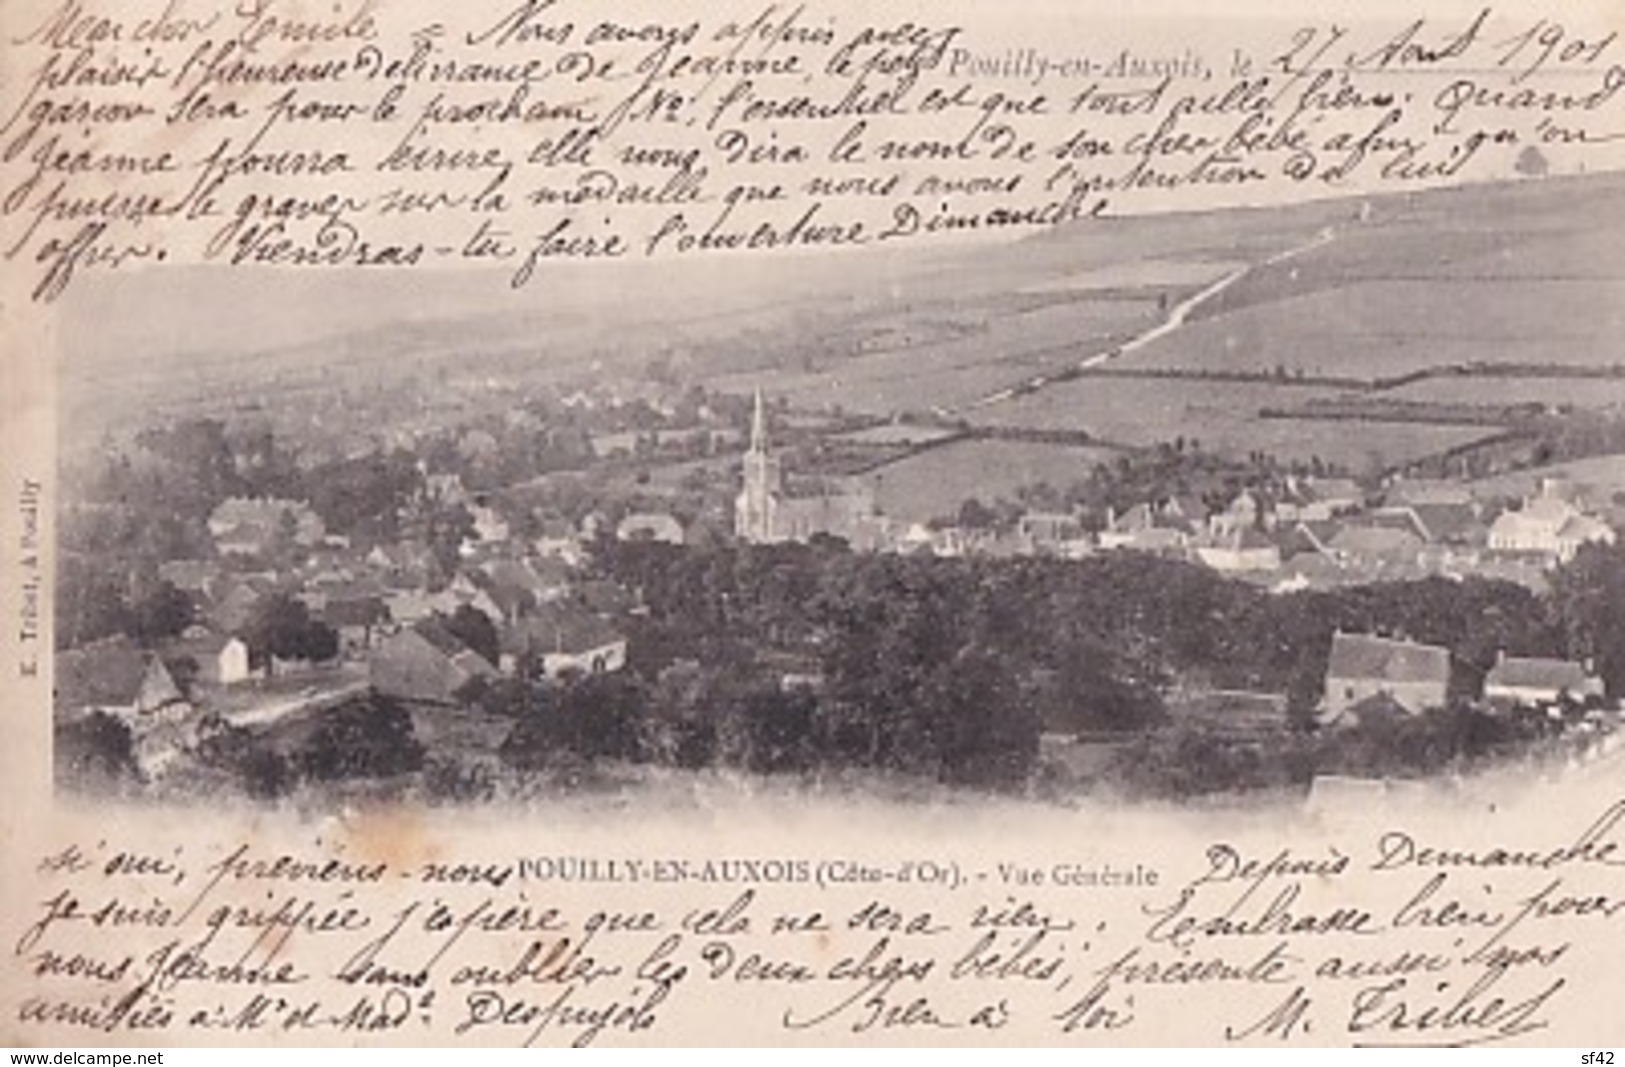 Mon cher Emile = Nous avons appris avec
Pouilly-en-Auxois, le 27 Aout 1901
plaisir l'heureuse délivrance de Jeanne, le petit
garçon sera pour le prochain No; l'essentiel est que tout aille bien. Quand
Jeanne pourra écrire, elle nous dira le nom de son cher bébé afin qu'on
puisse le graver sur la médaille que nous avons l'intention de lui
offrir. Viendras-tu faire l'ouverture Dimanche
E. Tribet, à Pouilly
si oui, préviens-nous
POUILLY-EN-AUXOIS (Côte-d'Or). - Vue Générale
Depuis Dimanche
je suis grippée j'espère que cela ne sera rien. Embrasse bien pour
nous Jeanne sans oublier les deux chers bébés, présente aussi nos
amitiés à Mr et Made Despujols Bien à toi M. Tribet
www.delcampe.net
sf42